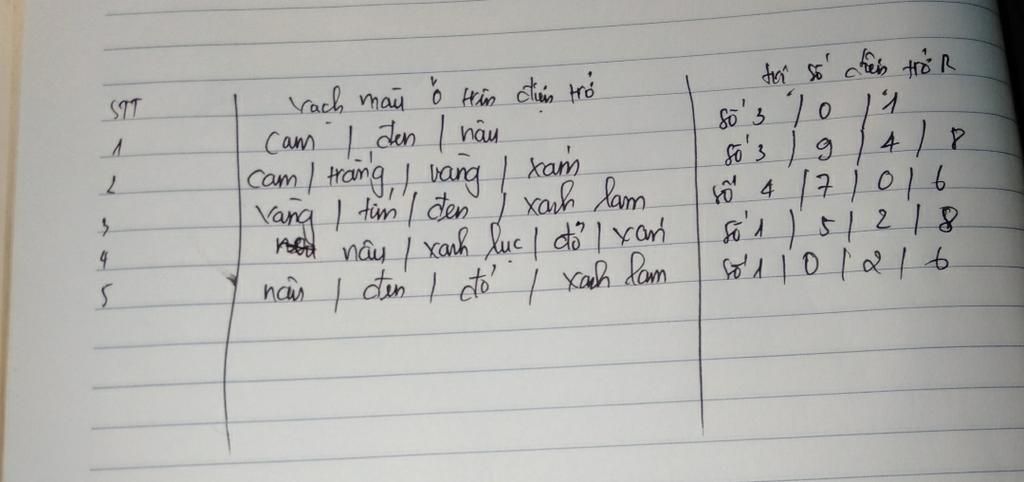 STT | Vạch màu ở trên điện trở | trị số điện trở R
1 | Cam | đen | nâu | số 3 | 0 | 1
2 | Cam | trắng | vàng | xám | số 3 | 9 | 4 | 8
3 | Vàng | tím | đen | xanh lam | số 4 | 7 | 0 | 6
4 | nâu | xanh lục | đỏ | xám | số 1 | 5 | 2 | 8
5 | nâu | đen | đỏ | xanh lam | số 1 | 0 | 2 | 6